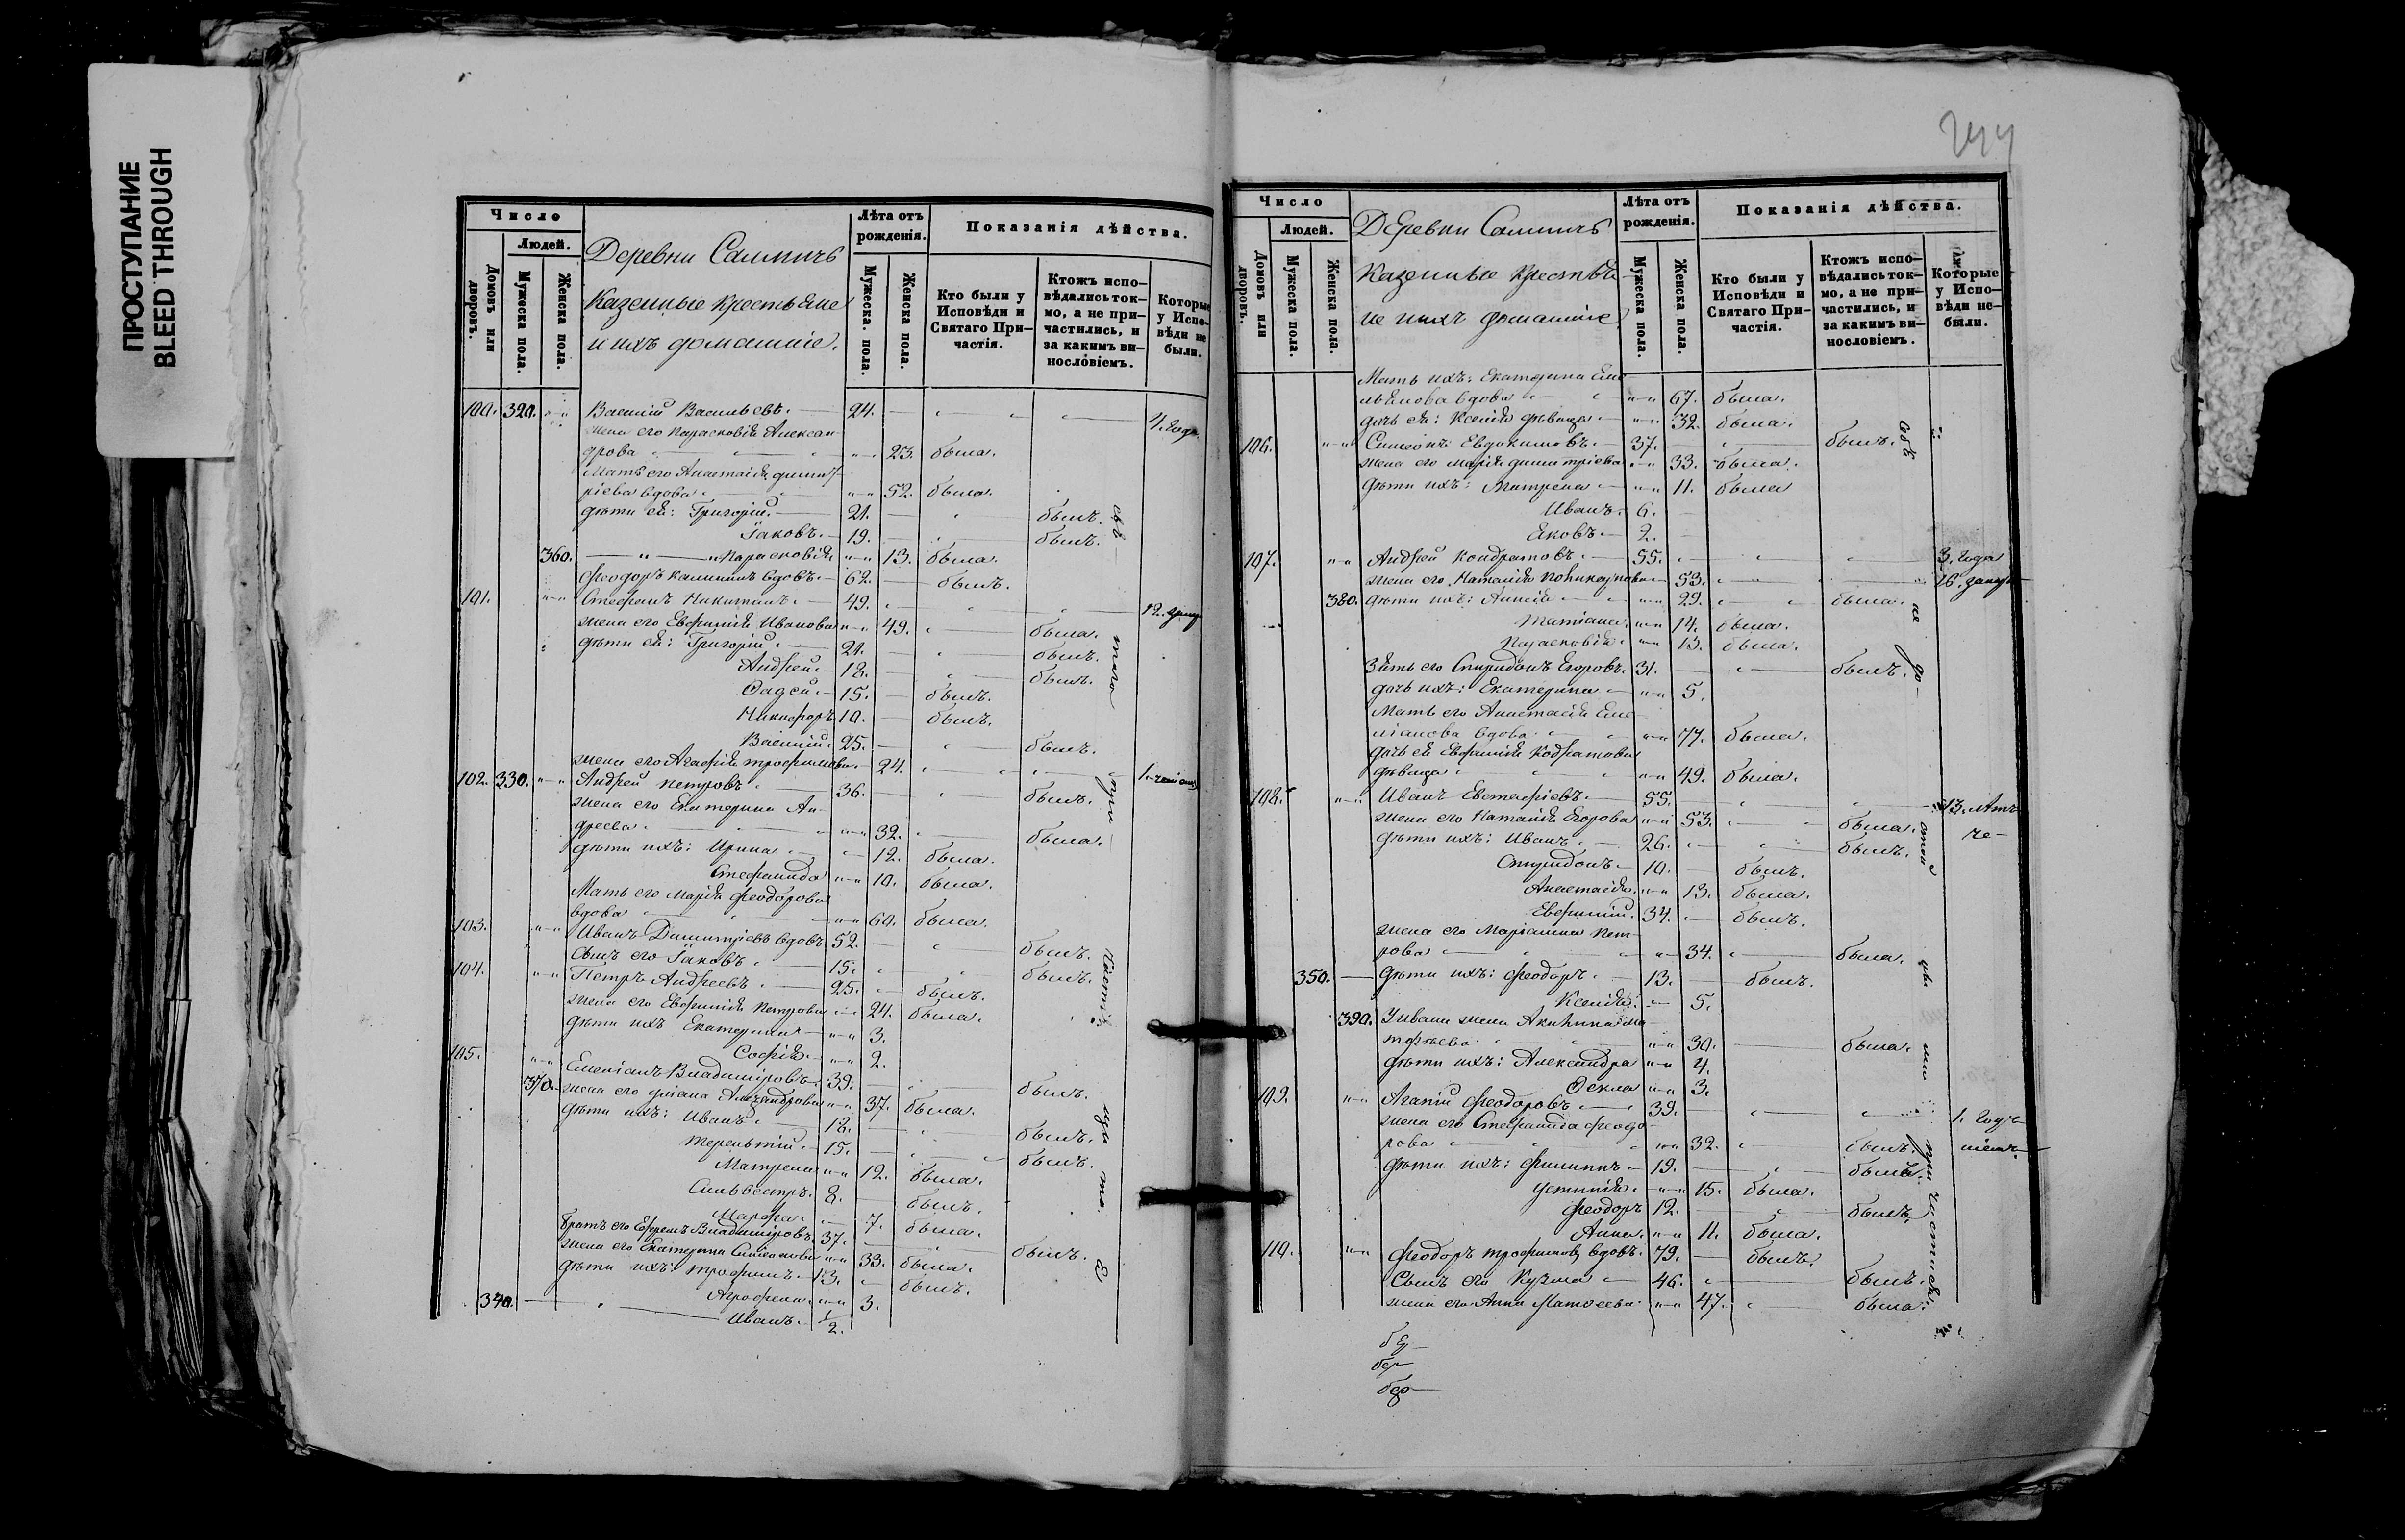 ПРОСТУПАНИЕ
BLEED THROUGH
Число
Людей.
Домовъ или дворовъ.
Мужеска пола.
Женска пола.
Деревни
Казенные Крестьяне
и ихъ домашніе.
Лѣта отъ рожденія.
Мужеска. пола.
Женска пола.
Показанія дѣйства.
Кто были у Исповѣди и Святаго При-частія.
Ктожъ испо-вѣдались ток-мо, а не при-частились, и за какимъ ви-нословіемъ.
Которые у Испо-вѣди не были.
100. 320. Василій Васильевъ. 24. 4. года
жена его Парасковія Алексан-
дрова 23. была.
Мать его Анастасія Димит-
ріева вдова 52. была.
дѣти ея: Григорій. 21. былъ.
Іаковъ. 19. былъ.
360. Парасковія 13. была.
Феодоръ Калининъ вдовъ. 62. былъ.
101. Стефанъ Никитинъ. 49. 12.
жена его Евфимія Иванова 49. была.
дѣти ея: Григорій. 21. былъ.
Андрей. 18. былъ.
Фадей. 15. былъ.
Никифоръ 10. былъ.
Василій. 25. былъ.
жена его Агафія Трофимова. 24. 1.
102. 330. Андрей Петровъ 36. былъ.
жена его Екатерина Ан-
дреева. 32. была.
дѣти ихъ: Ирина 12. была.
Стефанида 10. была.
Мать его Марія Феодорова
вдова 60. была.
103. Иванъ Димитріевъ вдовъ. 52. былъ.
Сынъ его Іаковъ. 15. былъ.
104. Петръ Андреевъ. 25. былъ.
жена его Евфимія Петрова 24. была.
дѣти ихъ Екатерина 3.
Софія. 2.
105. Емеліанъ Владиміровъ. 39. былъ.
370. жена его Александрова 37. была.
дѣти ихъ: Иванъ. 18. былъ.
Терентій. 15. былъ.
Матрена 12. была.
Сильвестръ. 8. былъ.
Марфа. 7. была.
братъ его Ефремъ Владиміровъ. 37. былъ.
жена его Екатерина Симеонова 33. была.
дѣти ихъ: Трофимъ. 13. былъ.
Агрофена. 3.
340. Иванъ. 1/2.
Число
Людей.
Домовъ или дворовъ.
Мужеска пола.
Женска пола.
Деревни
Казенные Крестья-
не ихъ домашніе
Лѣта отъ рожденія.
Мужеска пола.
Женска пола.
Показанія дѣйства.
Кто были у Исповѣди и Святаго При-частія.
Ктожъ испо-вѣдались ток-мо, а не при-частились, и за какимъ ви-нословіемъ.
Которые у Испо-вѣди не-были.
Мать ихъ: Екатерина Еме-
льянова вдова 67. была.
дочь ея: Ксенія дѣвица 32. была.
106. Симеонъ Евдокимовъ. 37. былъ.
жена его Марія Димитріева 33. была.
дѣти ихъ: Матрена 11. была
Иванъ. 6.
Яковъ. 2.
107. Андрей Кондратовъ. 55. 3. года
жена его Наталія 53. 16.
380. дѣти ихъ: Анисія 29. была.
Татіана. 14. была.
Парасковія. 13. была.
Зять его Спиридонъ Егоровъ. 31. былъ.
дочь ихъ: Екатерина 5.
Мать его Анастасія Еме-
ліанова вдова 77. была.
дочь ея Евфимія Кодратова
дѣвица 49. была.
108. Иванъ Евстафіевъ. 55. 13. лѣтъ
жена его Наталія Егорова 53. была.
дѣти ихъ: Иванъ. 26. былъ.
Спиридонъ 10. былъ.
Анастасія. 13. была.
Евфимій. 34. былъ.
жена его Маріанна Пет-
рова 34. была.
350. дѣти ихъ: Феодоръ. 13. былъ.
Ксенія. 5.
390. У Ивана жена Акилина Ма-
тфѣева 30. была.
дѣти ихъ: Александра 4.
Фекла 3.
109. Агапій Феодоровъ 39. 1. годъ
жена его Стефанида Феодо-
рова 32. былъ.
дѣти ихъ: Филиппъ 19. былъ.
Устинія. 15. была.
Феодоръ 12. былъ.
Анна. 11. была.
110. Феодоръ Трофимовъ вдовъ. 79. былъ.
Сынъ его Кузьма 46. былъ.
жена его Анна Матвеева. 47. была.